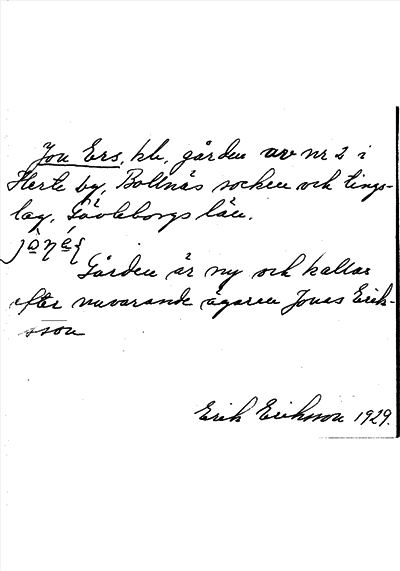 Jon Ers, kb, gården av nr 2 i
Herte by, Bollnäs socken och tings-
lag, Gävleborgs län.
Gården är ny och kallas
efter nuvarande ägaren Jonas Erik-
sson
Erik Eriksson 1929.